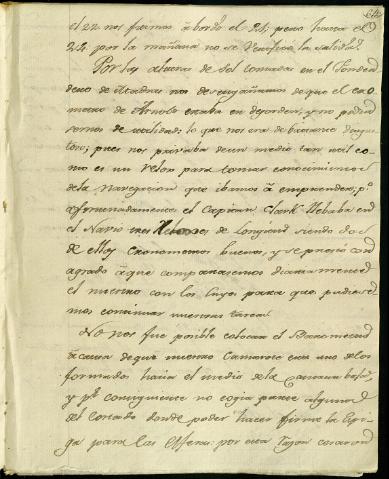 el 22 nos fuimos a bordo el 24; pero hasta el
24 por la mañana no se verificó la salida.
Por las alturas de Sol tomadas en el Fondea-
dero de Staaten nos desengañamos de que el cro-
metro de Arnold estaba en desorden, y no podia
sernos de utilidad; lo que nos era de bastante disgus-
tos; pues nos privaba de un medio tan util co-
mo es un relox para tomar conocimiento
de la Navegacion que ibamos a emprender; p.o
afortunadamente el Capitan Clark llebaba en
el Navio tres Reloxes de longitud siendo dos
de ellos Cronometros buenos, y se prestó con
agrado a que comparasemos diariamente
el nuestro con los suyos para que pudiese-
mos continuar nuestras tareas.
No nos fue posible colocar el Barometro
a causa de que nuestro Camarote era uno de los
formados hacia el medio de la Camara baja,
y p.r consiguiente no cogia parte alguna
del Costado donde poder hacer firme la Espi-
ga para las : por esta razon cesaron